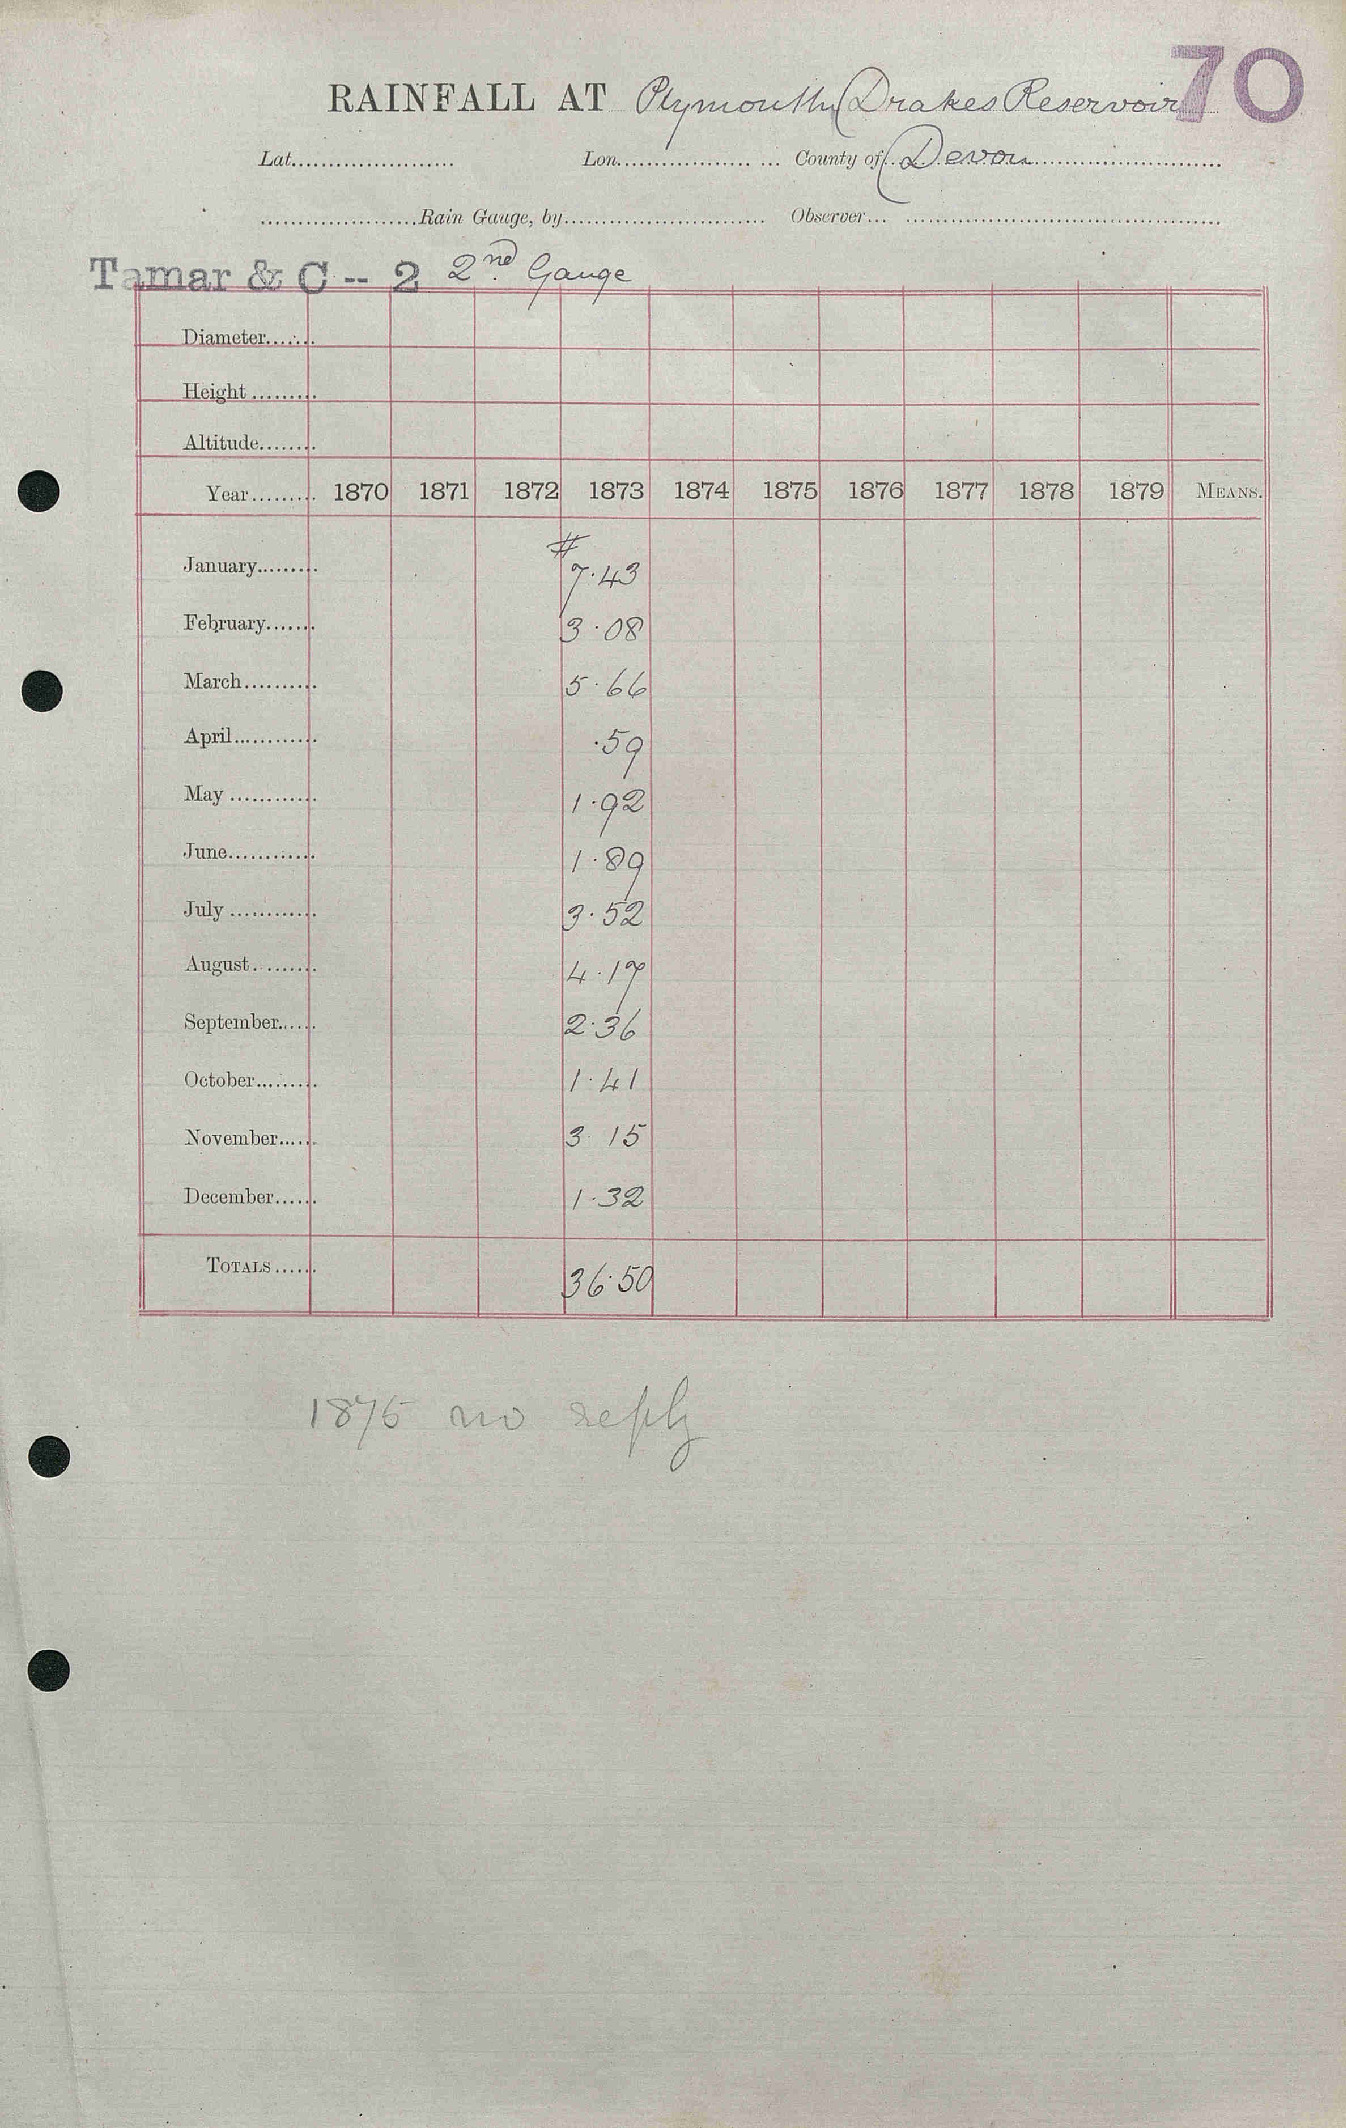 70
RAINFALL AT Plymouth Drakes Reservoir
Lat. Lon. County of Devon
Rain Gauge, by Observer
Tamar & C -- 2 2nd Gauge
Diameter
Height
Altitude
Year 1870 1871 1872 1873 1874 1875 1876 1877 1878 1879 MEANS.
#
January 7.43
February 3.08
March 5.66
April .59
May 1.92
June 1.89
July 3.52
August 4.17
September 2.36
October 1.41
November 3 15
December 1.32
TOTALS 36.50
1875 no reply